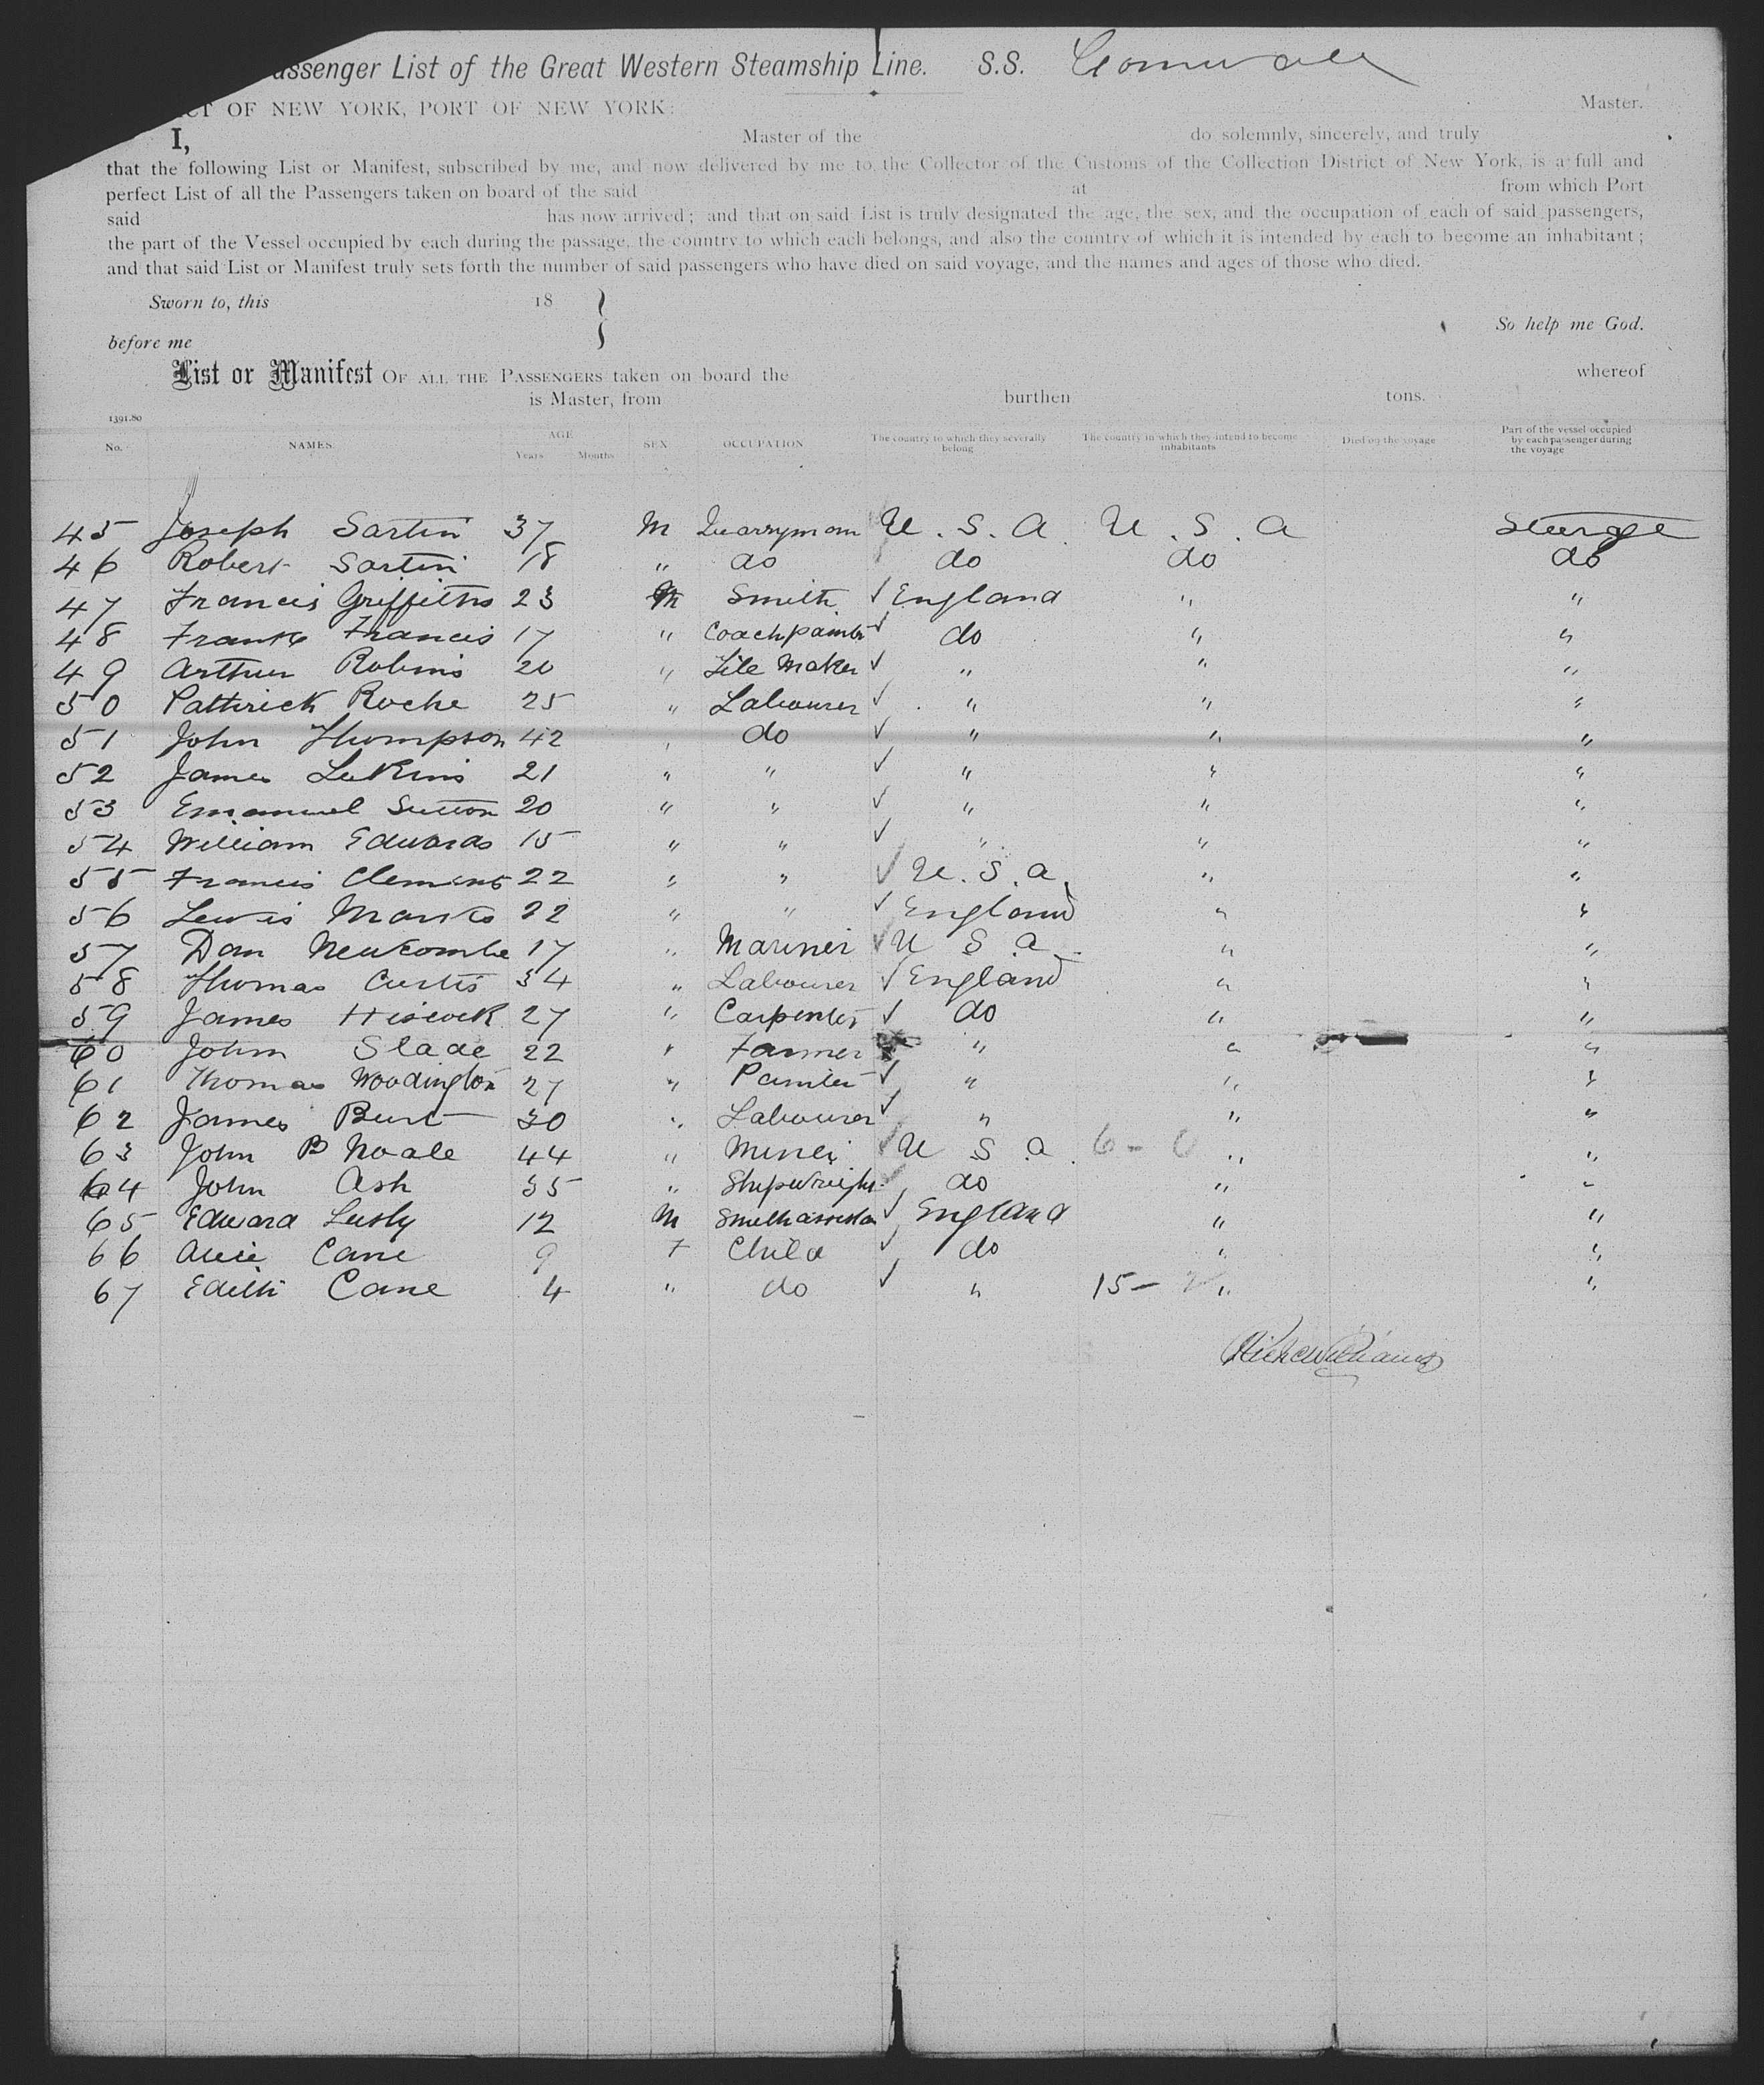 assenger List of the Great Western Steamship Line. S.S. Cornwall
CT OF NEW YORK, PORT OF NEW YORK: Master.
I, Master of the do solemnly, sincerely, and truly
that the following List or Manifest, subscribed by me, and now delivered by me to the Collector of the Customs of the Collection District of New York, is a full and
perfect List of all the Passengers taken on board of the said at from which Port
said has now arrived; and that on said List is truly designated the age, the sex, and the occupation of each of said passengers,
the part of the Vessel occupied by each during the passage, the country to which each belongs, and also the country of which it is intended by each to become an inhabitant;
and that said List or Manifest truly sets forth the number of said passengers who have died on said voyage, and the names and ages of those who died.
Sworn to, this 18
So help me God.
before me
List or Manifest OF ALL THE PASSENGERS taken on board the whereof
is Master, from burthen tons.
1391.80
No. NAMES. AGE Years Months SEX OCCUPATION The country to which they severally belong The country in which they intend to become inhabitants Died on the voyage Part of the vessel occupied by each passenger during the voyage
45 Joseph Sartin 37 M Quarryman U.S.A. U.S.A Steerage
46 Robert Sartin 18 " do do do do
47 Francis Griffiths 23 M Smith ✓ England " "
48 Frank Francis 17 " Coachpainter ✓ do " "
49 Arthur Robins 20 " Tile Maker ✓ " " "
50 Patterick Roche 25 " Labourer ✓ " " "
51 John Thompson 42 " do ✓ " " "
52 James Lukins 21 " " ✓ " " "
53 Emanuel Sutton 20 " " ✓ " " "
54 William Edwards 15 " " ✓ " " "
55 Francis Clemens 22 " " ✓ U.S.A. " "
56 Lewis Marks 22 " " ✓ England " "
57 Dan Newcombe 17 " Mariner ✓ U S A " "
58 Thomas Curtis 34 " Labourer ✓ England " "
59 James Hiscock 27 " Carpenter ✓ do " "
60 John Slade 22 " Farmer " " "
61 Thomas Woodington 27 " Painter ✓ " " "
62 James Burt 30 " Labourer ✓ " " "
63 John B Noale 44 " Miner ✓ U S A 6 - 0 " "
64 John Ash 35 " Shipwright ✓ do " "
65 Edward Lusty 12 M Smith assistan ✓ England " "
66 Alice Cane 9 F Child ✓ do " "
67 Edith Cane 4 " do ✓ " 15 - " "